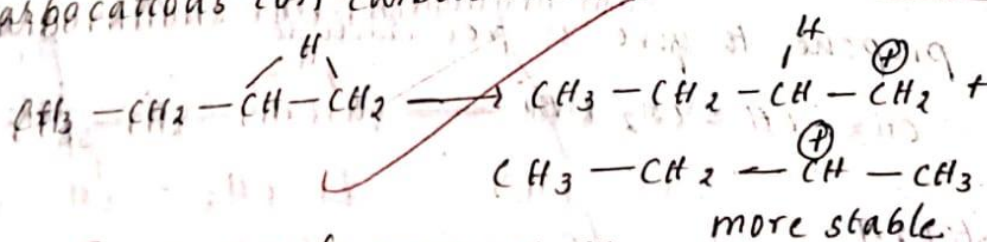 H H
CH3 – CH2 – CH – CH2 ⟶ CH3 – CH2 – CH – CH2 ⊕ +
CH3 – CH2 – CH ⊕ – CH3
more stable.